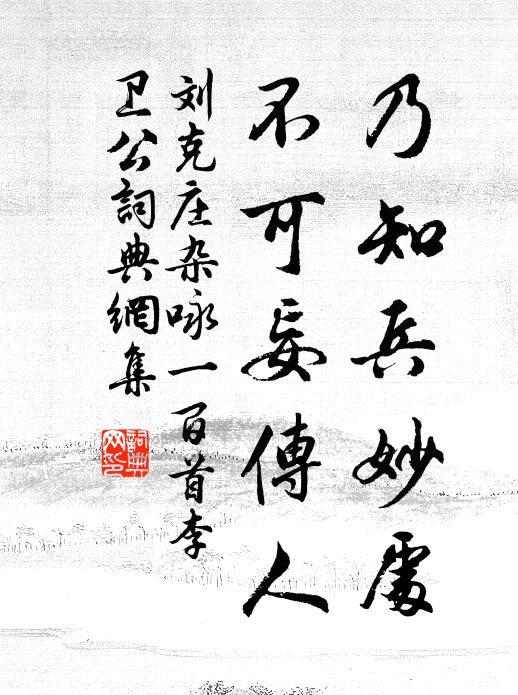 乃知兵妙處
不可妄傳人
刘克庄杂咏一百首李
卫公詞典網集
詞典
网印